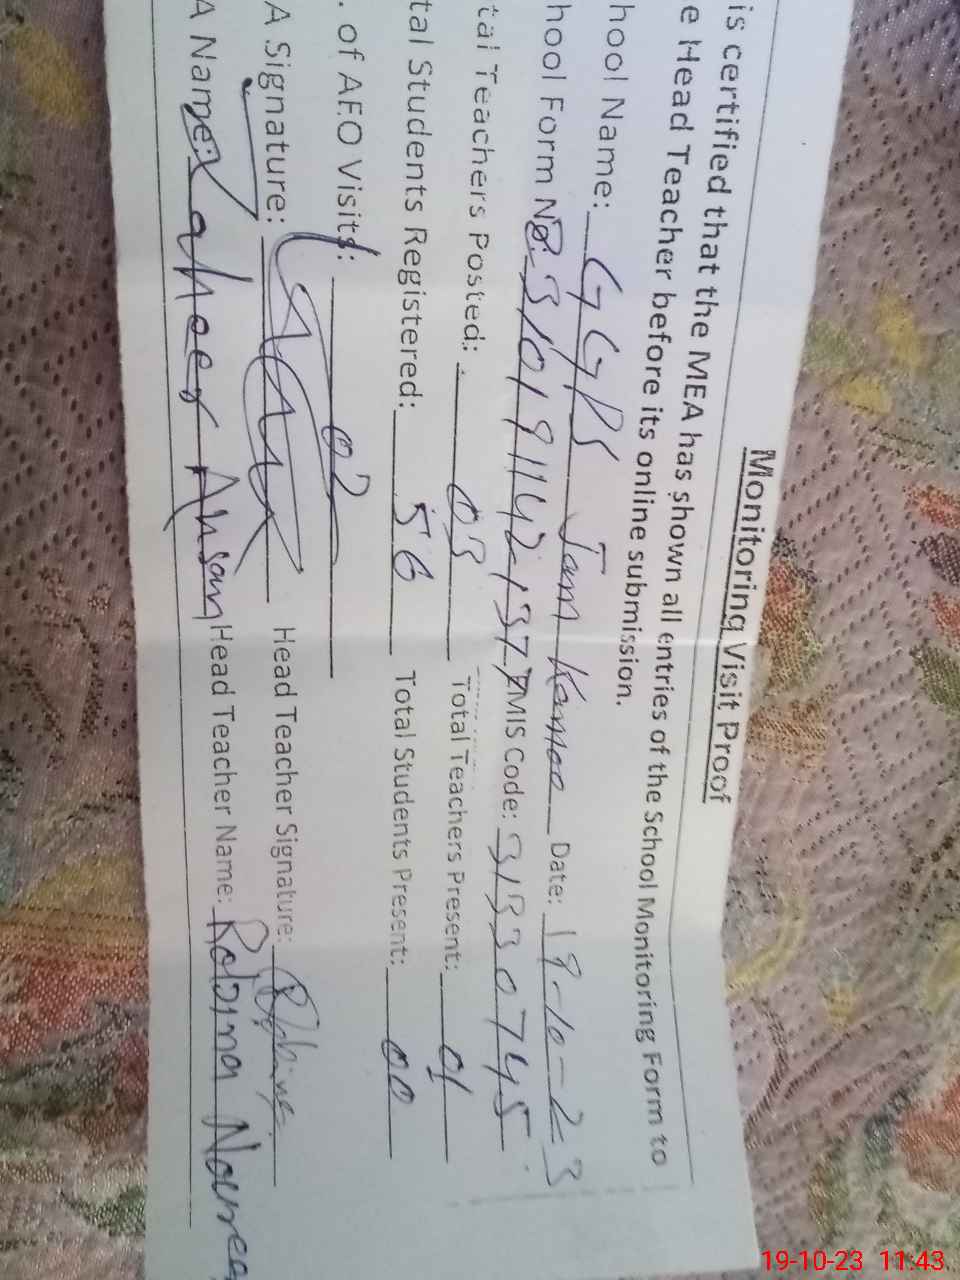 Monitoring Visit Proof
is certified that the MEA has shown all entries of the School Monitoring Form to
e Head Teacher before its online submission.
hool Name: GGPS Jam Kamoo Date: 19-10-23
hool Form No: EMIS Code: 31330745
tal Teachers Posted: 03 Total Teachers Present: 01
tal Students Registered: 56 Total Students Present: 00
. of AEO Visits: 02
A Signature: Head Teacher Signature: Robina
A Name: Zaheer Ahsan Head Teacher Name: Robina
19-10-23 11:43